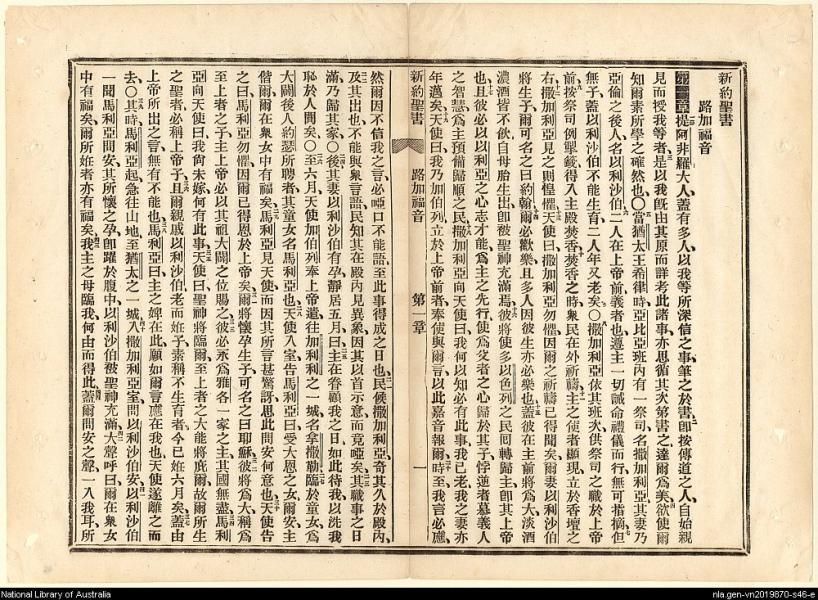 新約聖書
路加福音
第一章提阿非羅大人蓋有多人以我等所深信之事筆之於書卽按傳道之人自始親
見而授我等者是以我旣由其原而詳考此諸事亦思循其次第書之達爾爲美欲使爾
知爾素所學之確然也〇當猶太王希律時亞比亞班內有一祭司名撒加利亞其妻乃
亞倫之後人名以利沙伯二人在上帝前義者也遵主一切誡命禮儀而行無可指摘但
無子蓋以利沙伯不能生育二人年又老矣〇撒加利亞依其班次供祭司之職於上帝
前按祭司例掣籤得入主殿焚香焚香之時衆民在外祈禱主之使者顯現立於香壇之
右撒加利亞見之則惶懼天使曰撒加利亞勿懼因爾之祈禱已得聞矣爾妻以利沙伯
將生子爾可名之曰約翰爾必歡樂且多人因彼生亦必樂也蓋彼在主前將爲大淡酒
濃酒皆不飲自母胎生出卽被聖神充滿焉彼將使多以色列之民囘轉歸主卽其上帝
也且彼必以以利亞之心志才能爲主之先行使爲父者之心歸於其子悖逆者慕義人
之智慧爲主預備歸順之民撒加利亞向天使曰我何以知必有此事我已老我之妻亦
年邁矣天使曰我乃加伯列立於上帝前者奉使與爾言以此嘉音報爾時至我言必應
新約聖書 路加福音 第一章 一
然爾因不信我之言必啞口不能語至此事得成之日也民候撒加利亞奇其久於殿內
及其出也不能與衆言語民知其在殿內見異象因其以首示意而竟啞矣其職事之日
滿乃歸其家〇後其妻以利沙伯有孕靜居五月曰主在眷顧我之日如此待我以洗我
恥於人間矣〇至六月天使加伯列奉上帝遣往加利利之一城名拿撒勒臨於童女爲
大闢後人約瑟所聘者其童女名馬利亞也天使入室告馬利亞曰受大恩之女爾安主
偕爾爾在衆女中有福矣馬利亞見天使而因其所言甚驚訝思此問安何意也天使告
之曰馬利亞勿懼因爾已得恩於上帝矣爾將懷孕生子可名之曰耶穌彼將爲大稱爲
至上者之子主上帝必以其祖大闢之位賜之彼必永爲雅各一家之主其國無盡馬利
亞向天使曰我尙未嫁何有此事天使曰聖神將臨爾至上者之大能將庇爾故爾所生
之聖者必稱上帝子且爾親戚以利沙伯老而姙子素稱不生育者今已姙六月矣蓋由
上帝所出之言無有不能也馬利亞曰主之婢在此願如爾言應在我也天使遂離之而
去〇其時馬利亞起急往山地至猶太之一城入撒加利亞室問以利沙伯安以利沙伯
一聞馬利亞問安其所懷之孕卽躍於腹中以利沙伯被聖神充滿大聲呼曰爾在衆女
中有福矣爾所姙者亦有福矣我主之母臨我何由而得此蓋爾問安之聲一入我耳所
National Library of Australia
nla.gen-vn2019870-s46-e